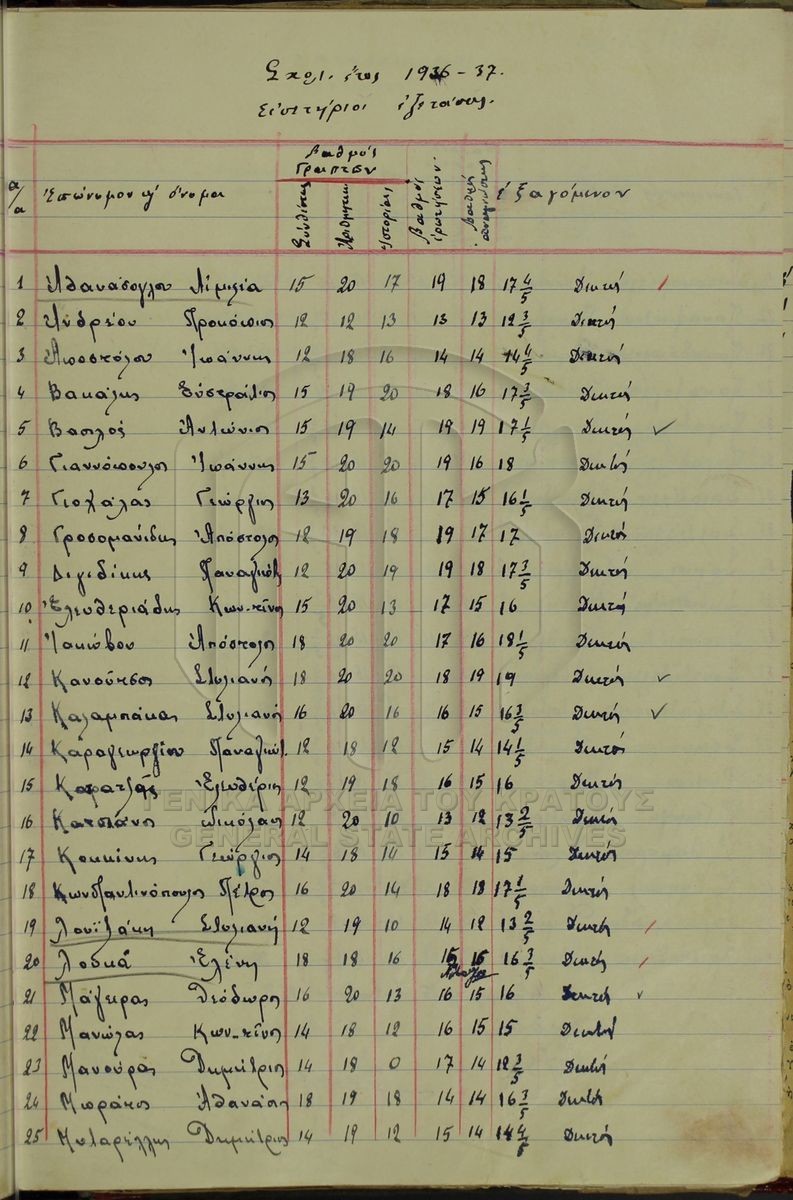 Σχολ. έτος 1936-37.
Εισιτήριοι εξετάσεις.
α/α Επώνυμον κ' όνομα Βαθμός Γραπτών Σύνθεσις Αριθμητικ. Ιστορίας Βαθμός ερωτήσεων. Βαθμός αναγνώσεως εξαγόμενον
1 Αθανάσογλου Αιμιλία 15 20 17 19 18 17 4/5 Δεκτή
2 Ανδρέου Προκόπιος 12 12 13 13 13 12 3/5 Δεκτός
3 Αποστόλου Ιωάννης 12 18 16 14 14 14 4/5 Δεκτός
4 Βακάλης Ευστράτιος 15 19 20 18 16 17 3/5 Δεκτός
5 Βασιλός Αντώνιος 15 19 14 19 19 17 1/5 Δεκτός
6 Γιαννόπουλος Ιωάννης 15 20 20 19 16 18 Δεκτός
7 Γεώργιος 13 20 16 17 15 16 1/5 Δεκτός
8 Γροσομανίδης Απόστολος 12 19 18 19 17 17 Δεκτός
9 Διγιδίκης Παναγιώτ. 12 20 19 19 18 17 3/5 Δεκτός
10 Ελευθεριάδης Κων-τίνος 15 20 13 17 15 16 Δεκτός
11 Ιακώβου Απόστολος 18 20 20 17 16 18 1/5 Δεκτός
12 Κανούτσου Στυλιανή 18 20 20 18 19 19 Δεκτή
13 Καλαμπάκας Στυλιανός 16 20 16 16 15 16 3/5 Δεκτός
14 Καραγεωργίου Παναγιώτ. 12 18 12 15 14 14 1/5 Δεκτός
15 Ελευθέριος 12 19 18 16 15 16 Δεκτός
16 Κατσιάνος Νικόλαος 12 20 10 13 12 13 2/5 Δεκτός
17 Κοκκίνης Γεώργιος 14 18 14 15 14 15 Δεκτός
18 Κωνσταντινόπουλος Πέτρος 16 20 14 18 18 17 1/5 Δεκτός
19 Λουϊζάκη Στυλιανή 12 19 10 14 12 13 2/5 Δεκτή
20 Λουκά Ελένη 18 18 16 15 16 16 3/5 Δεκτή
21 Μάγειρας Θεόδωρος 16 20 13 16 15 16 Δεκτός
22 Μανώλας Κων-τίνος 14 18 12 16 15 15 Δεκτός
23 Μανούρας Δημήτριος 14 18 0 17 14 12 3/5 Δεκτός
24 Μωράκος Αθανάσιος 18 19 18 14 14 16 3/5 Δεκτός
25 Μυταρέλλης Δημήτριος 14 19 12 15 14 14 4/5 Δεκτός
ΓΕΝΙΚΑ ΑΡΧΕΙΑ ΤΟΥ ΚΡΑΤΟΥΣ
GENERAL STATE ARCHIVES